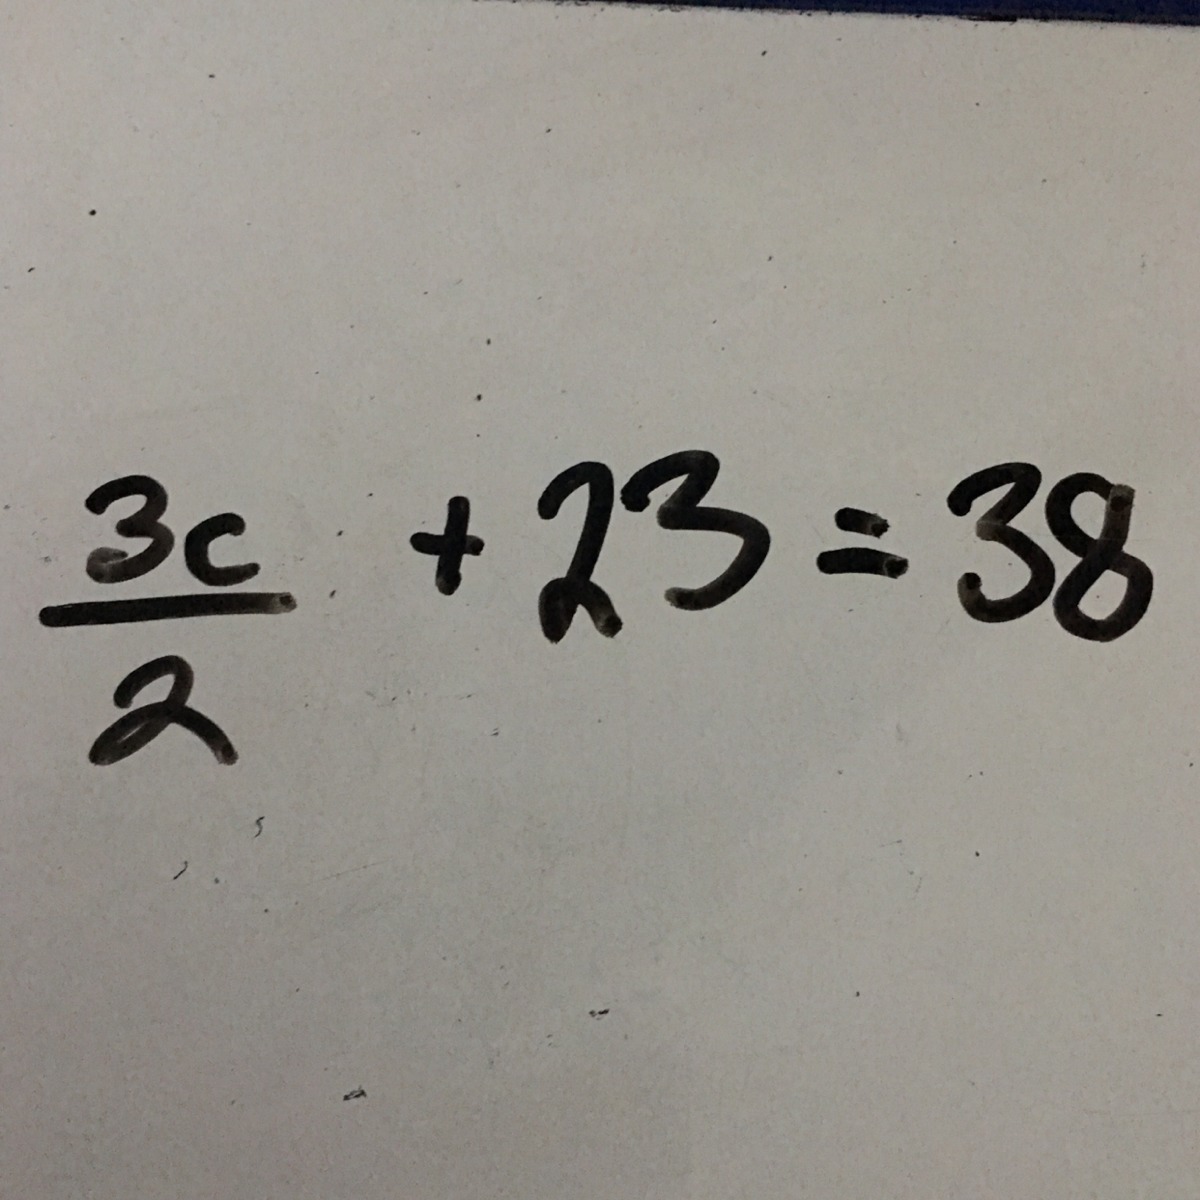 3c/2 + 23 = 38